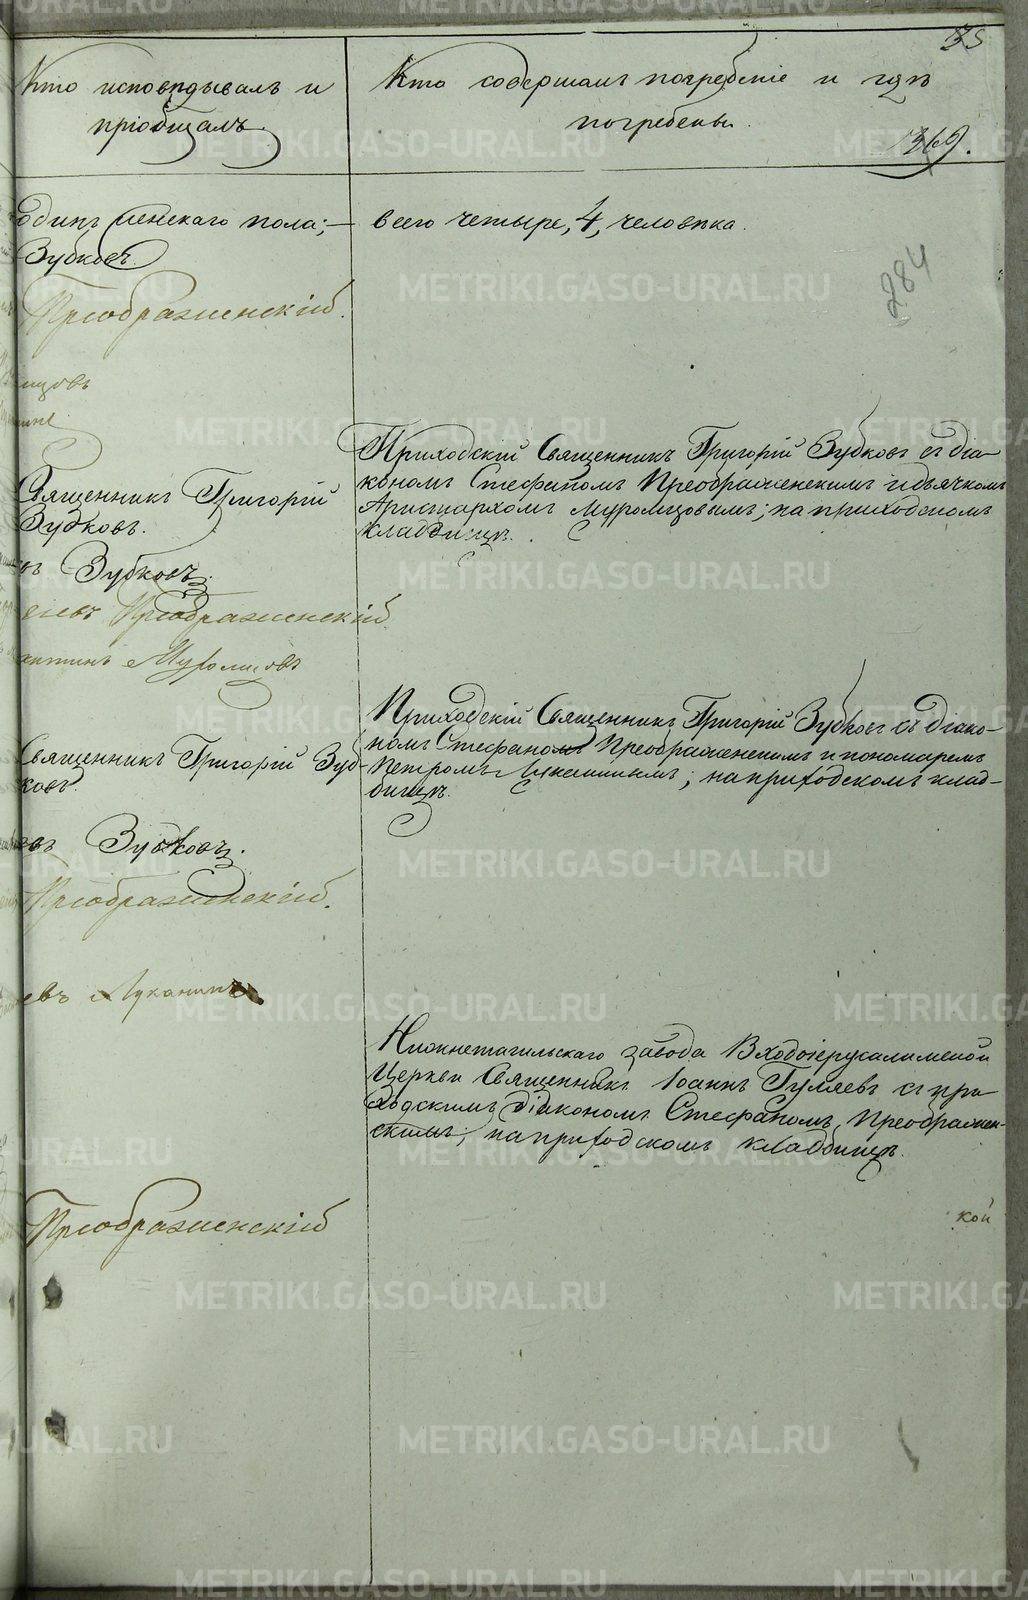 35
Кто исповѣдывалъ и
пріобщалъ.
Кто совершалъ погребеніе и гдѣ
погребены.
369.
284
одинъ женскаго пола; —
всего четыре, 4, человѣка.
Зубковъ
Преображенскій.
мцовъ
Священникъ Григорій
Зубковъ.
Приходскій Священникъ Григорій Зубковъ съ діа-
кономъ Стефаномъ Преображенскимъ и дьячкомъ
Аристархомъ Муромцовымъ; на приходскомъ
кладбищѣ.
въ Зубковъ.
Преображенскій
Муромцовъ
Священникъ Григорій Зуб-
ковъ.
Приходскій Священникъ Григорій Зубковъ съ діако-
номъ Стефаномъ Преображенскимъ и пономаремъ
Петромъ Луканинымъ; на приходскомъ клад-
бищѣ.
Зубковъ.
Преображенскій.
евъ Луканинъ
Нижнетагильскаго завода Входоіерусалимской
Церкви Священникъ Іоаннъ Гуляевъ съ при-
ходскимъ діакономъ Стефаномъ Преображен-
скимъ; на приходскомъ кладбищѣ.
Преображенскій
кой
METRIKI.GASO-URAL.RU